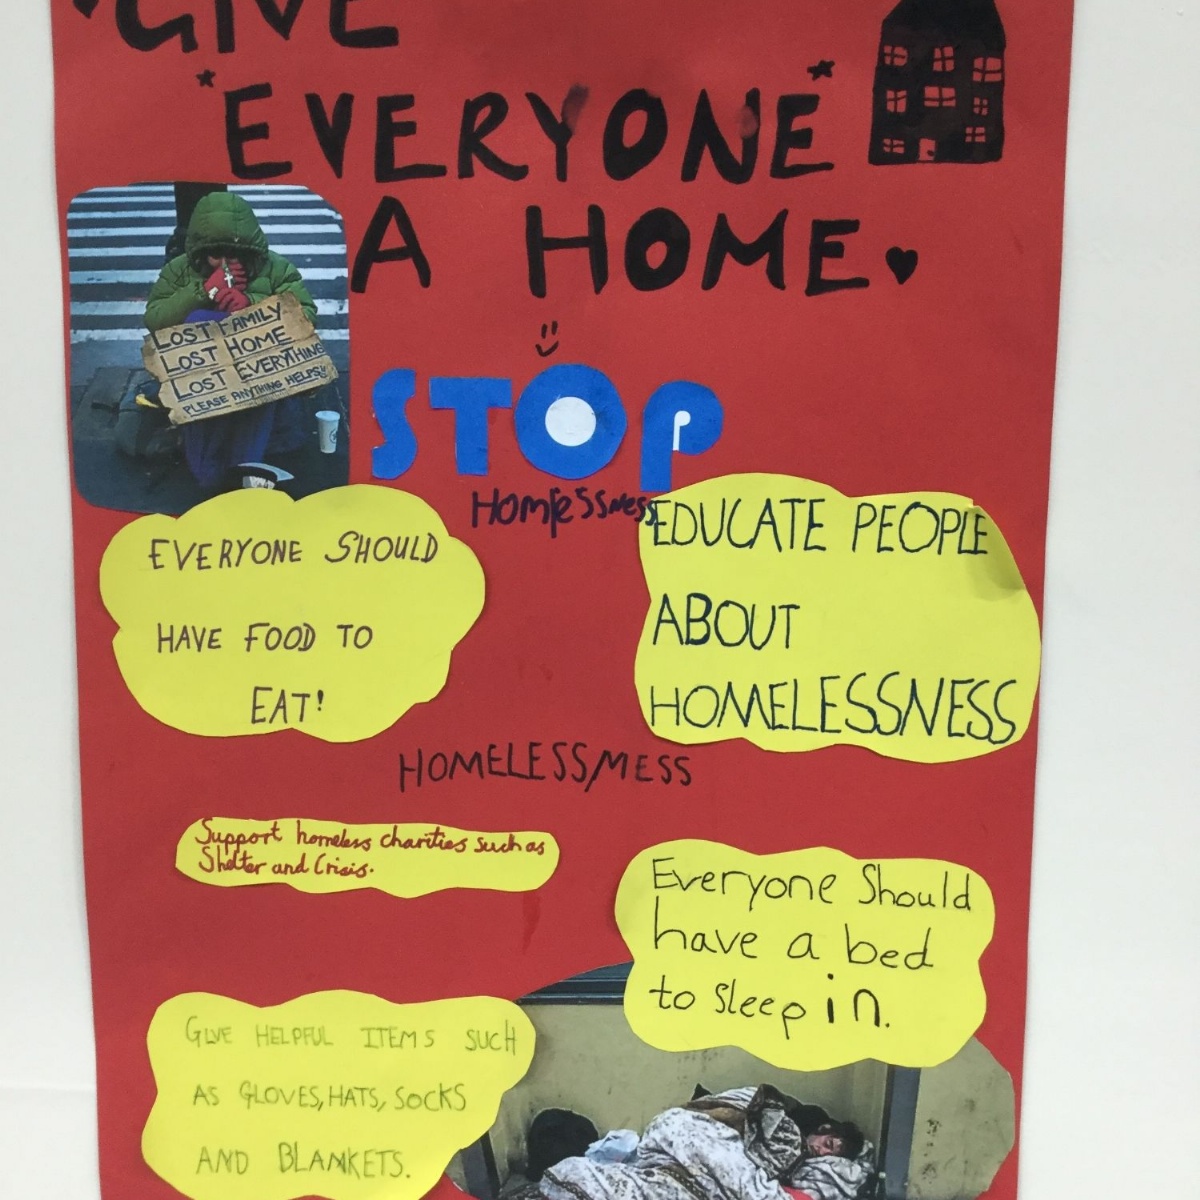 GIVE
"EVERYONE"
A HOME.
LOST FAMILY
LOST HOME
LOST EVERYTHING
PLEASE ANYTHING HELPS!!
STOP
Homlessness
EVERYONE SHOULD
HAVE FOOD TO
EAT!
EDUCATE PEOPLE
ABOUT
HOMELESSNESS
HOMELESS/MESS
Support homeless charities such as
Shelter and Crisis.
Everyone Should
have a bed
to sleep in.
GIVE HELPFUL ITEMS SUCH
AS GLOVES, HATS, SOCKS
AND BLANKETS.